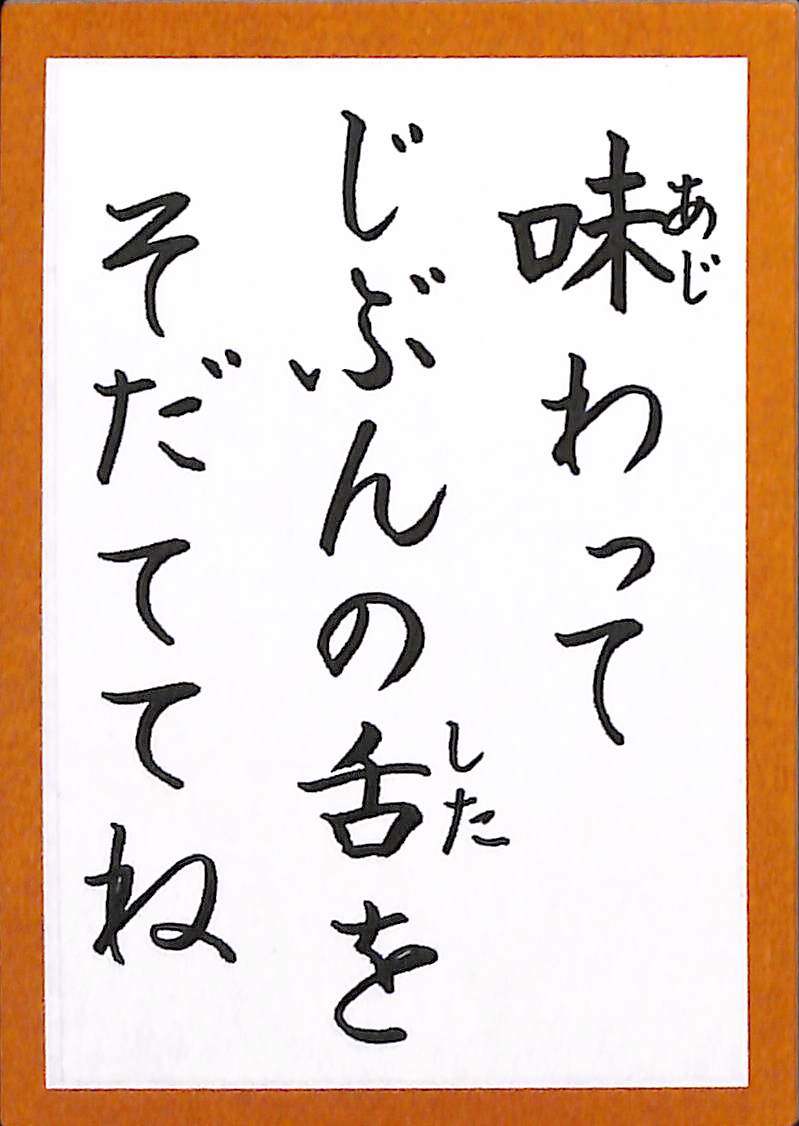 味わって
じぶんの舌を
そだててね
あじ
した